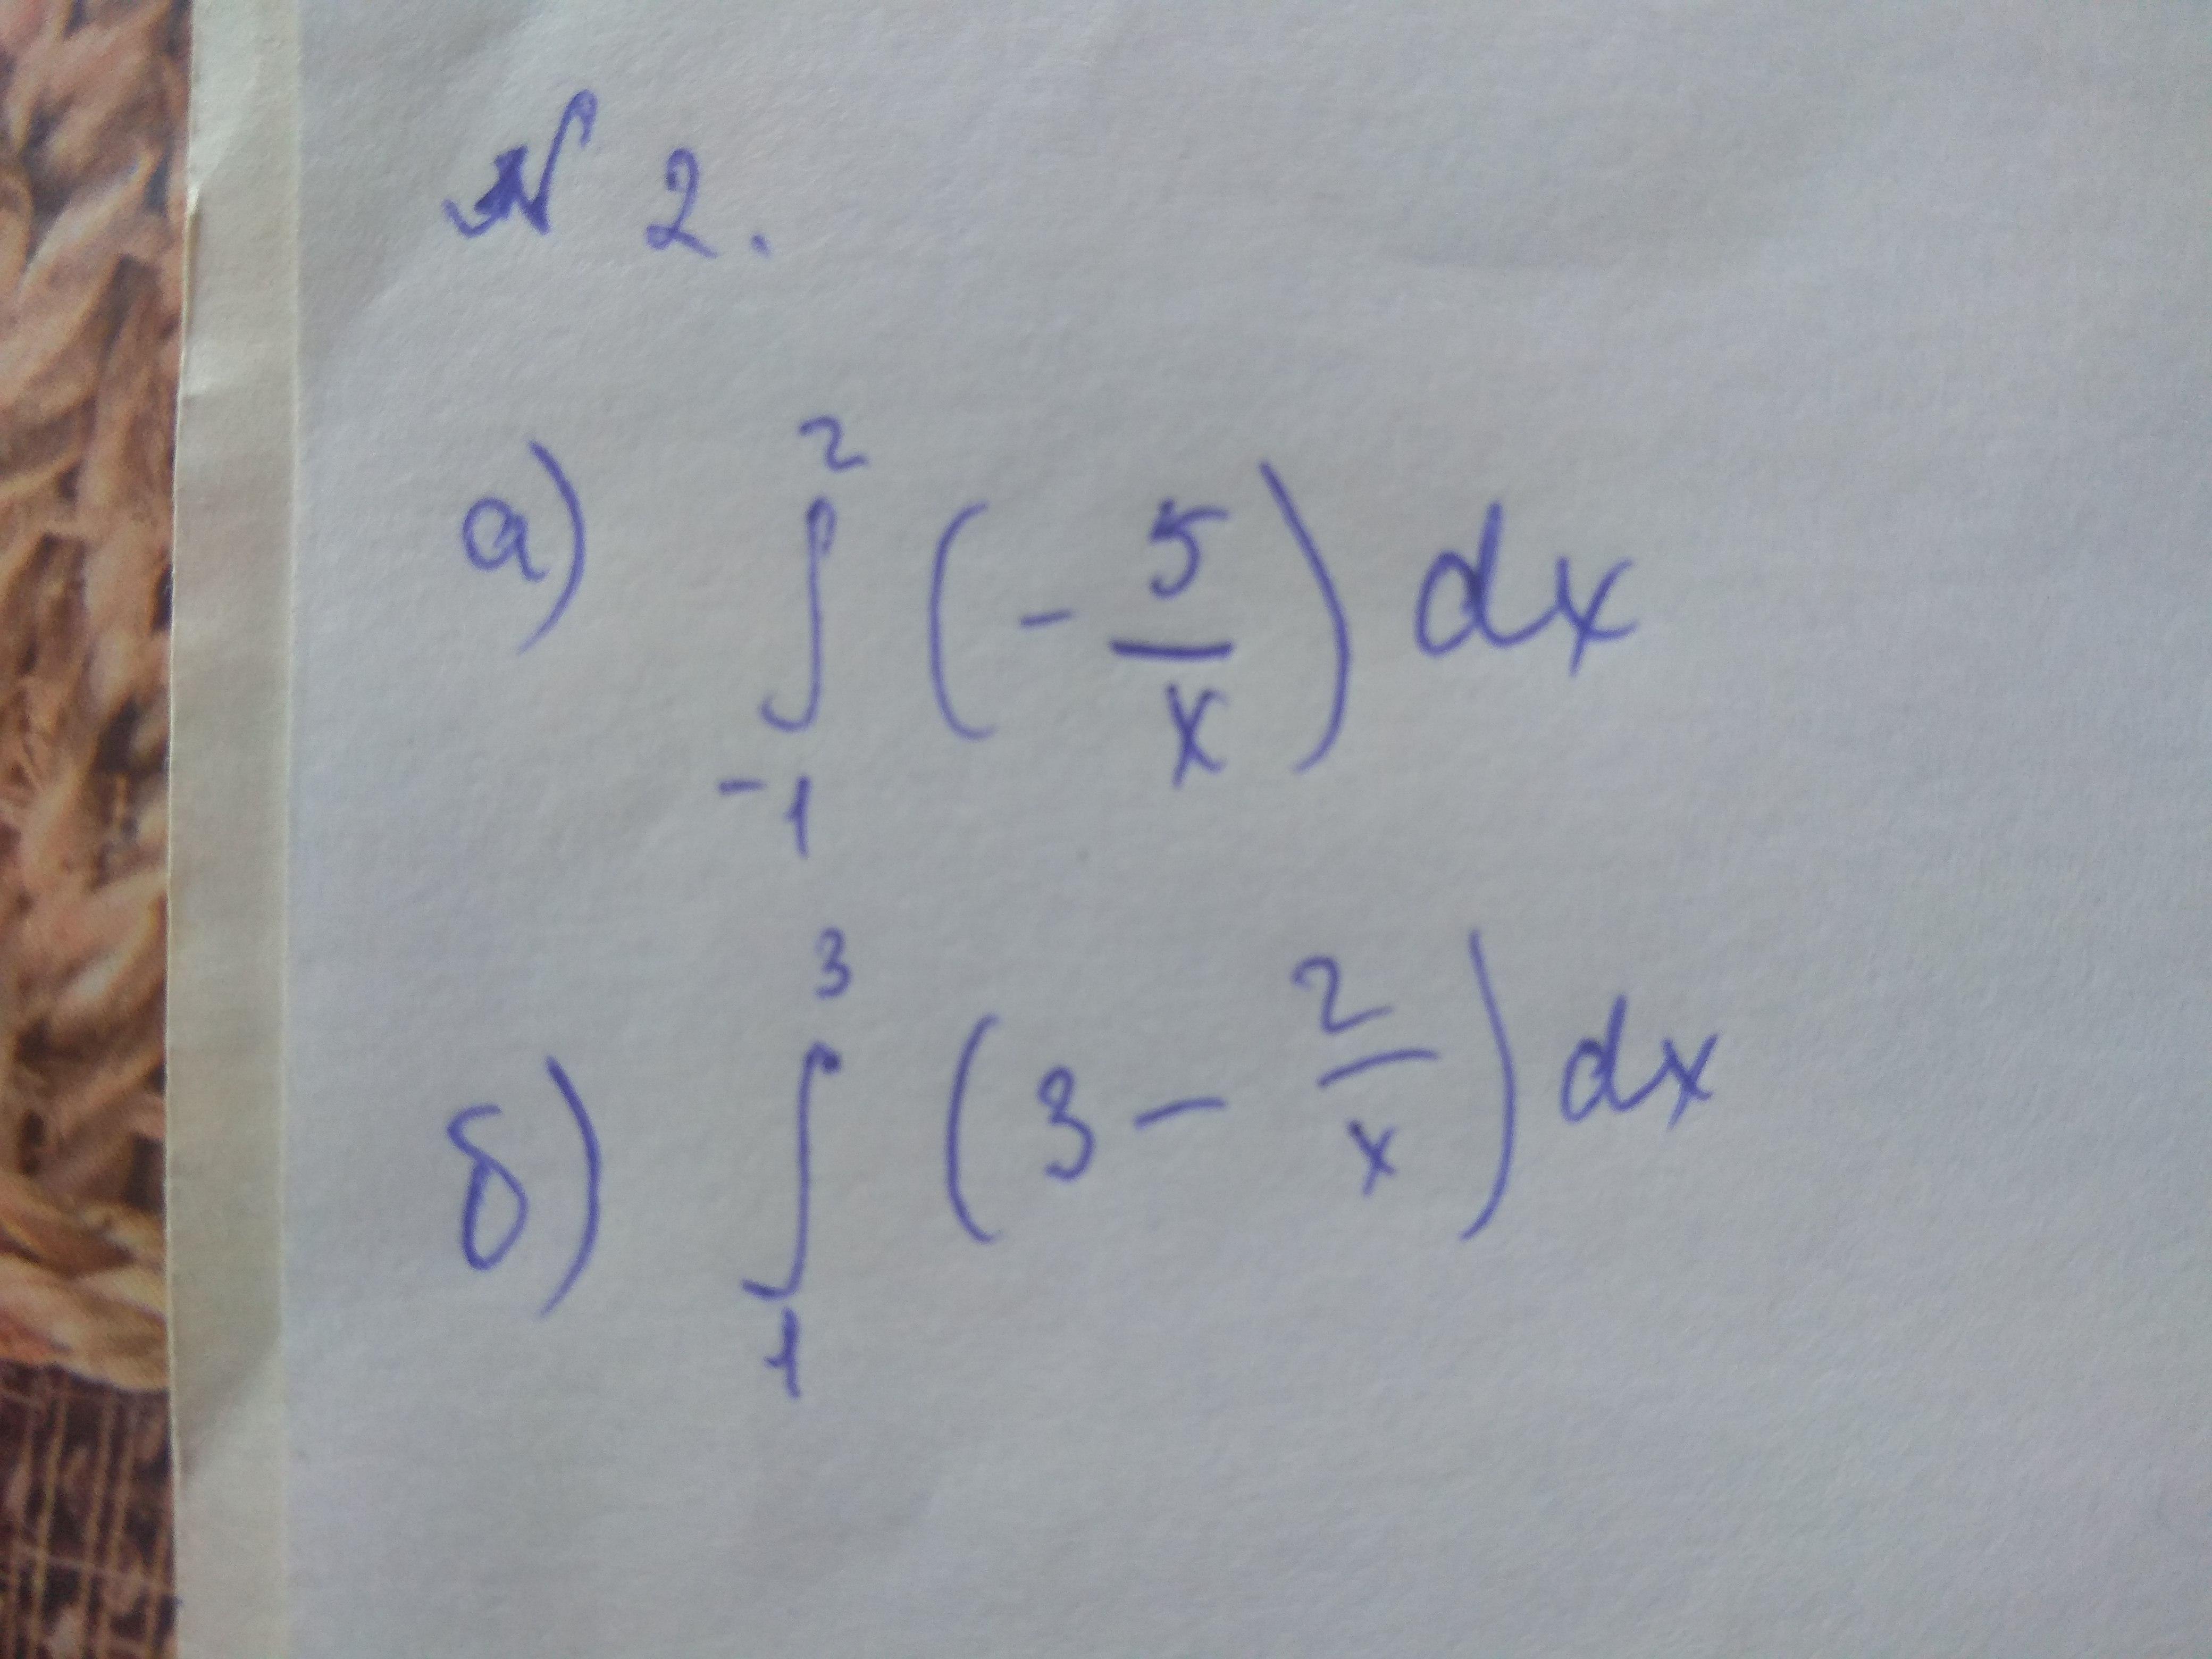 № 2.
а) ∫_{-1}^{2} (- 5/x) dx
б) ∫_{1}^{3} (3 - 2/x) dx